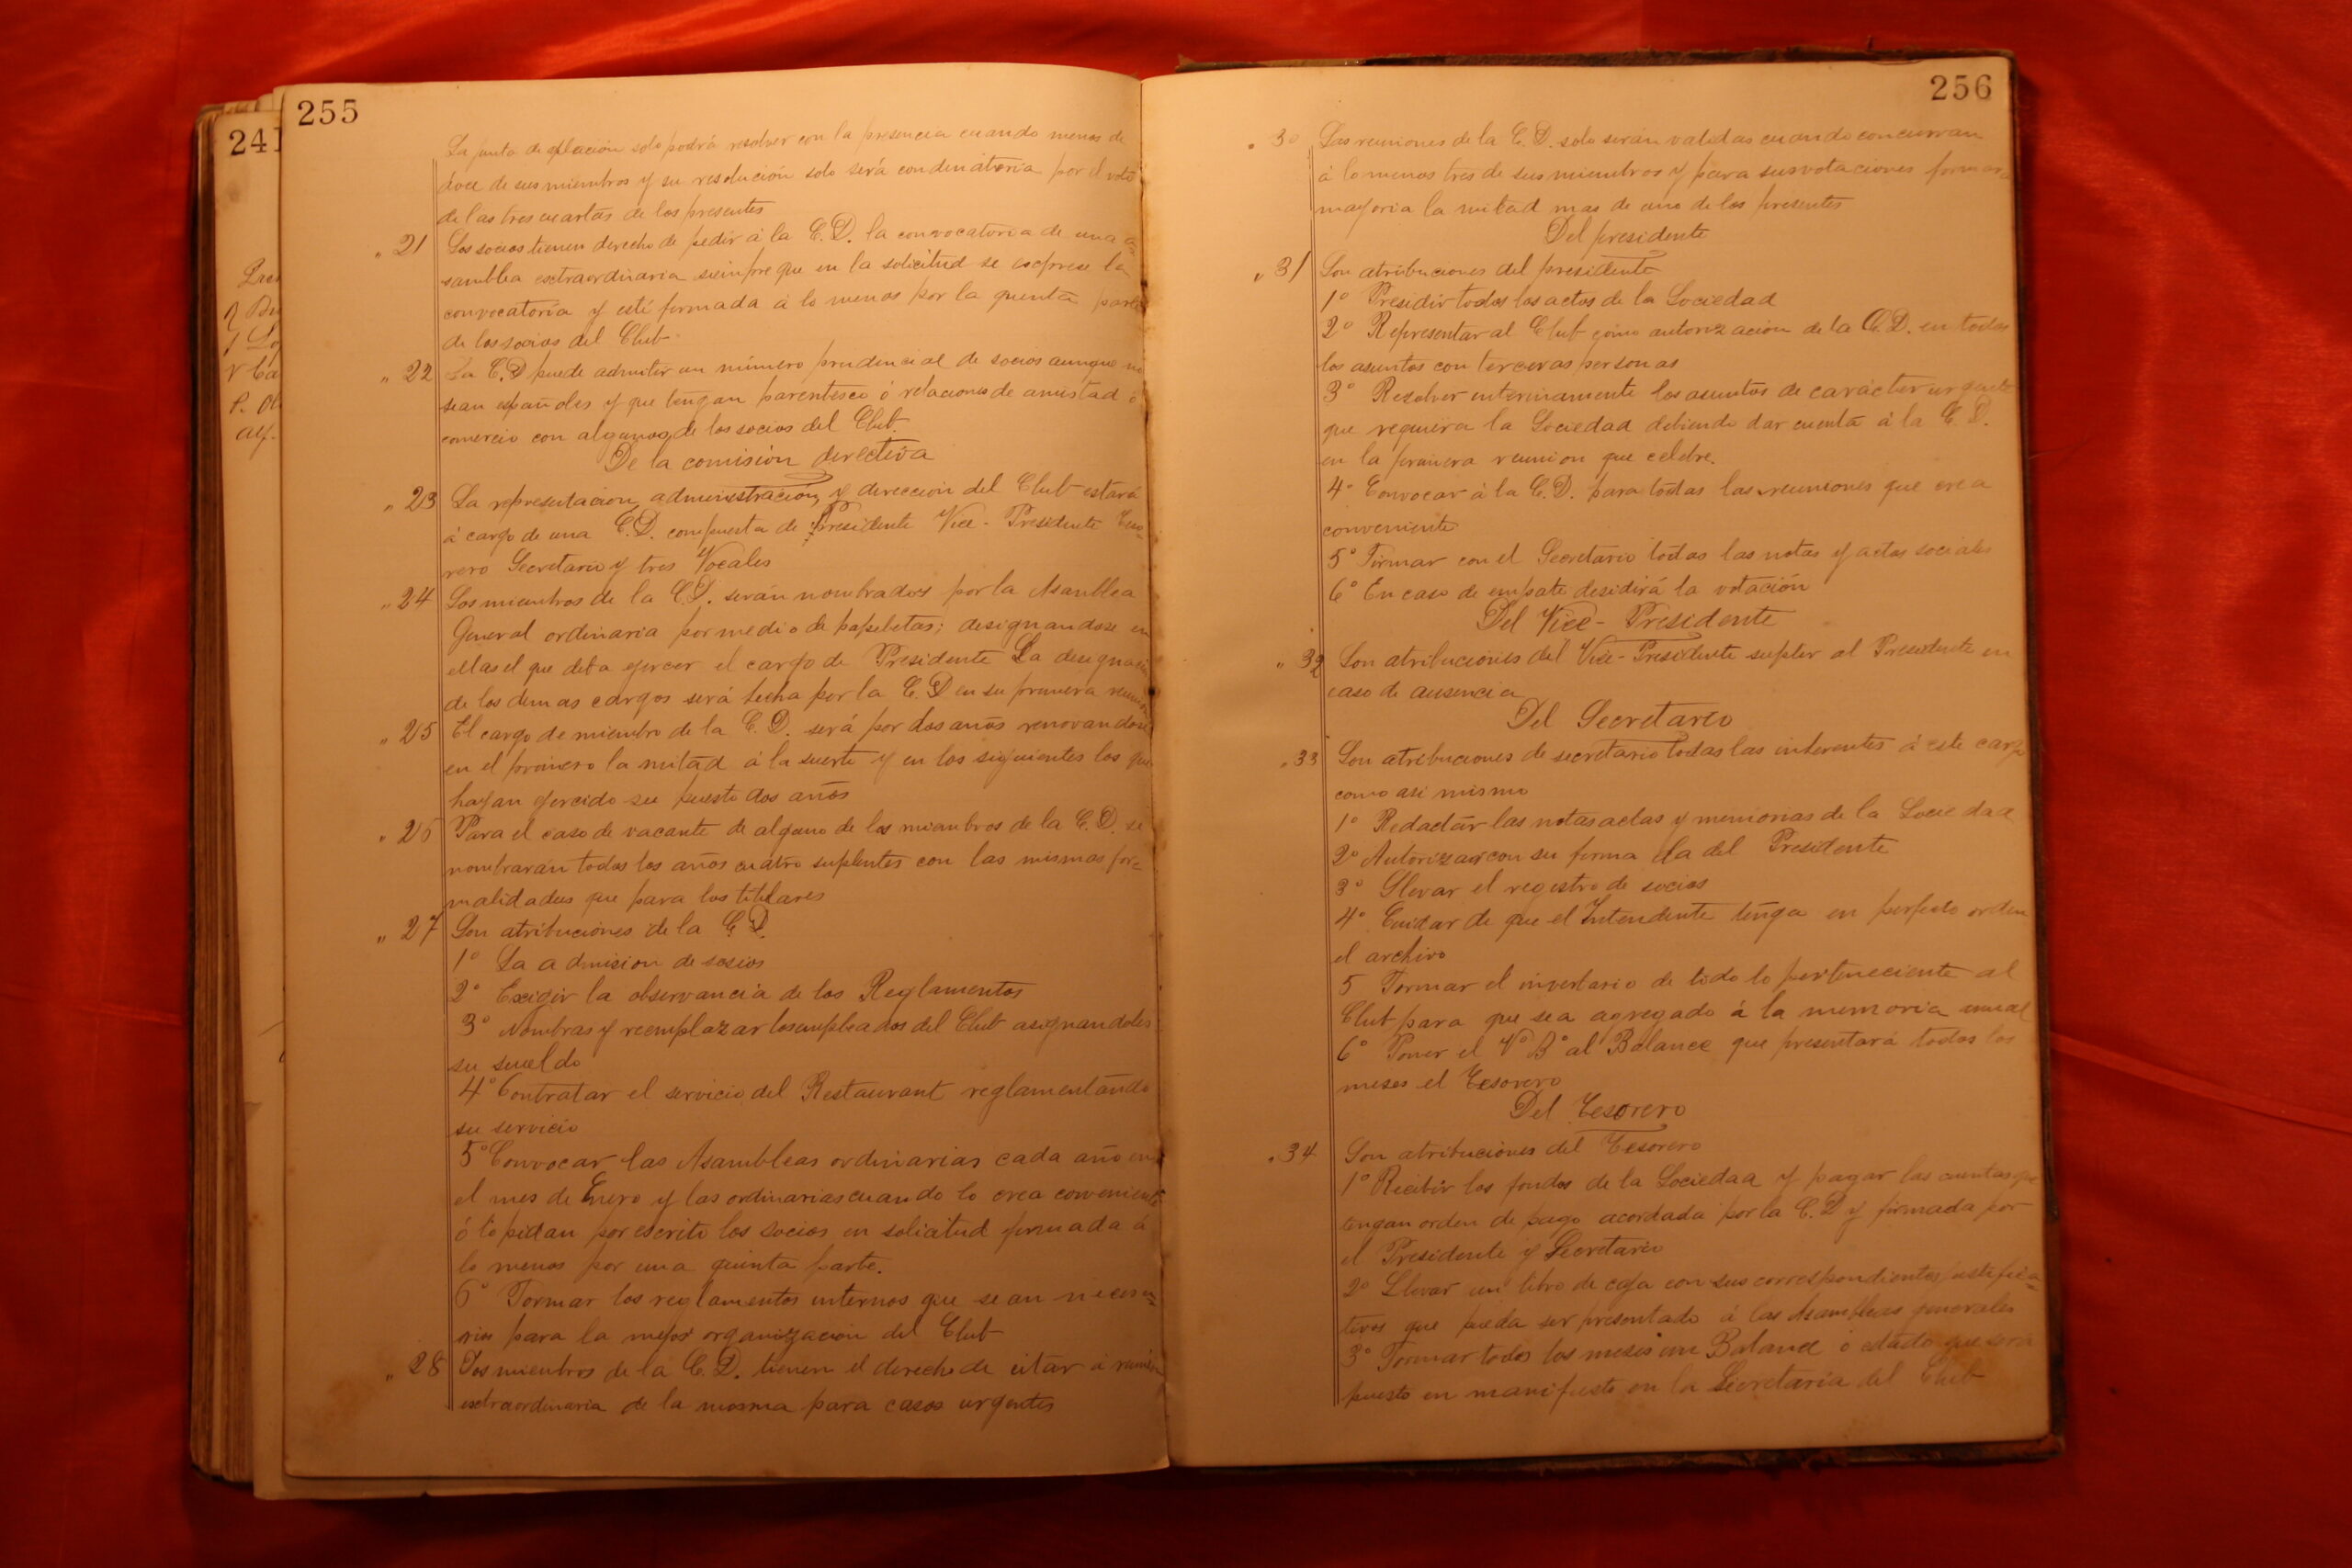 255
La junta de apelación solo podrá resolver con la presencia cuando menos de
doce de sus miembros y su resolución solo será condenatoria por el voto
de las tres cuartas de los presentes
" 21 Los socios tienen derecho de pedir á la C.D. la convocatoria de una a
samblea esctraordinaria siempre que en la solicitud se esclprese la
convocatoria y esté firmada á lo menos por la quinta parte
de los socios del Club.
" 22 La C.D puede admitir un número prudencial de socios aunque no
sean españoles y que tengan parentesco ó relaciones de amistad ó
comercio con algunos de los socios del Club.
De la comisión directiva
" 23 La representacion, administración y direccion del Club estará
á cargo de una C.D. compuesta de Presidente Vice-Presidente Teso=
rero Secretario y tres Vocales
" 24 Los miembros de la C.D. serán nombrados por la Asamblea
General ordinaria por medio de papeletas; designandose en
ellas el que deba ejercer el cargo de Presidente La designación
de los demas cargos será hecha por la C.D en su primera reunion
" 25 El cargo de miembro de la C.D. será por dos años renovandose
en el primero la mitad á la suerte y en los siguientes los que
hayan ejercido su puesto dos años
" 26 Para el caso de vacante de alguno de los miembros de la C.D. se
nombrarán todos los años cuatro suplentes con las mismas for=
malidades que para los titulares
" 27 Son atribuciones de la C.D.
1° La admision de socios
2° Excigir la observancia de los Reglamentos
3° Nombras y reemplazar los empleados del Club asignandoles
su sueldo
4° Contratar el servicio del Restaurant reglamentando
su servicio
5° Convocar las Asambleas ordinarias cada año en
el mes de Enero y las ordinarias cuando lo crea conveniente
ó lo pidan por escrito los socios en solicitud firmada á
lo menos por una quinta parte.
6° Formar los reglamentos internos que sean necesa=
rios para la mejor organización del Club
" 28 Los miembros de la C.D. tienen el derecho de citar á reunión
esctraordinaria de la misma para casos urgentes
256
" 30 Las reuniones de la C.D. solo serán validas cuando concurran
á lo menos tres de sus miembros y para sus votaciones formara
mayoria la mitad mas de uno de los presentes
Del presidente
" 31 Son atribuciones del presidente
1° Presidir todos los actos de la Sociedad
2° Representar al Club como autorización de la C.D. en todos
los asuntos con terceras personas
3° Resolver interinamente los asuntos de carácter urgente
que requiera la Sociedad debiendo dar cuenta á la C.D.
en la primera reunion que celebre.
4° Convocar á la C.D. para todas las reuniones que crea
conveniente
5° Firmar con el Secretario todas las notas y actas sociales
6° En caso de empate desidirá la votación
Del Vice-Presidente
" 32 Son atribuciones del Vice-Presidente suplir al Presidente en
caso de ausencia
Del Secretario
" 33 Son atribuciones de secretario todas las inherentes á este cargo
como asi mismo
1° Redactar las notas actas y memorias de la Sociedad
2° Autorizar con su firma la del Presidente
3° Llevar el registro de socios
4° Cuidar de que el Intendente tenga en perfecto orden
el archivo
5 Formar el inventario de todo lo perteneciente al
Club para que sea agregado á la memoria anual
6° Poner el V° B° al Balance que presentará todos los
meses el Tesorero
Del Tesorero
" 34 Son atribuciones del Tesorero
1° Recibir los fondos de la Sociedad y pagar las cuentas que
tengan orden de pago acordada por la C.D y firmada por
el Presidente y Secretario
2° Llevar un libro de caja con sus correspondientes justifica=
tivos que pueda ser presentado á las Asambleas generales
3° Formar todos los meses un Balance ó estado que será
puesto en manifiesto en la Secretaria del Club